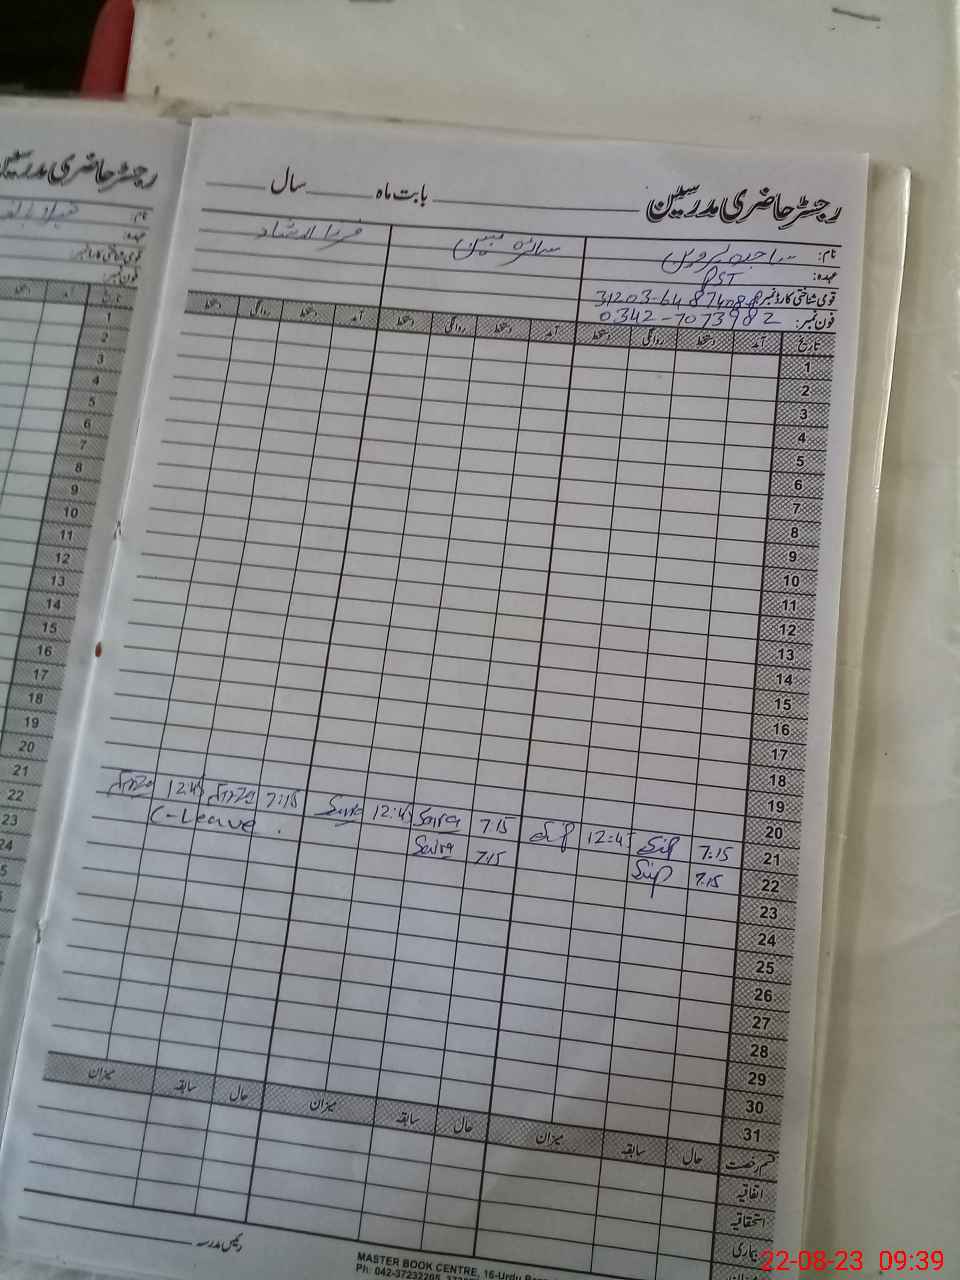 رجسٹر حاضری مدرسین
بابت ماہ
سال
نام: ساجدہ پروین
سائرہ
عہدہ: PST
قومی شناختی کارڈ نمبر:
فون نمبر: 0342-7073982
تاریخ آمد دستخط روانگی دستخط آمد دستخط روانگی دستخط آمد دستخط روانگی دستخط
1
2
3
4
5
6
7
8
9
10
11
12
13
14
15
16
17
18
19
20
21 7:15 12:45 7:15 Saira 12:45 Saira 7:15 12:45
22 7:15 7:15 Saira C-Leave
23
24
25
26
27
28
29
30
31
قسم رخصت حال سابقہ میزان حال سابقہ میزان حال سابقہ میزان
اتفاقیہ
استحقاقیہ
بیماری
رئیس مدرسہ
MASTER BOOK CENTRE, 16-Urdu
Ph: 042-37232205,
رجسٹر حاضری مدرسین
نام:
عہدہ:
قومی شناختی کارڈ نمبر:
فون نمبر:
تاریخ آمد دستخط
1
2
3
4
5
6
7
8
9
10
11
12
13
14
15
16
17
18
19
20
21
22
23
24
22-08-23 09:39